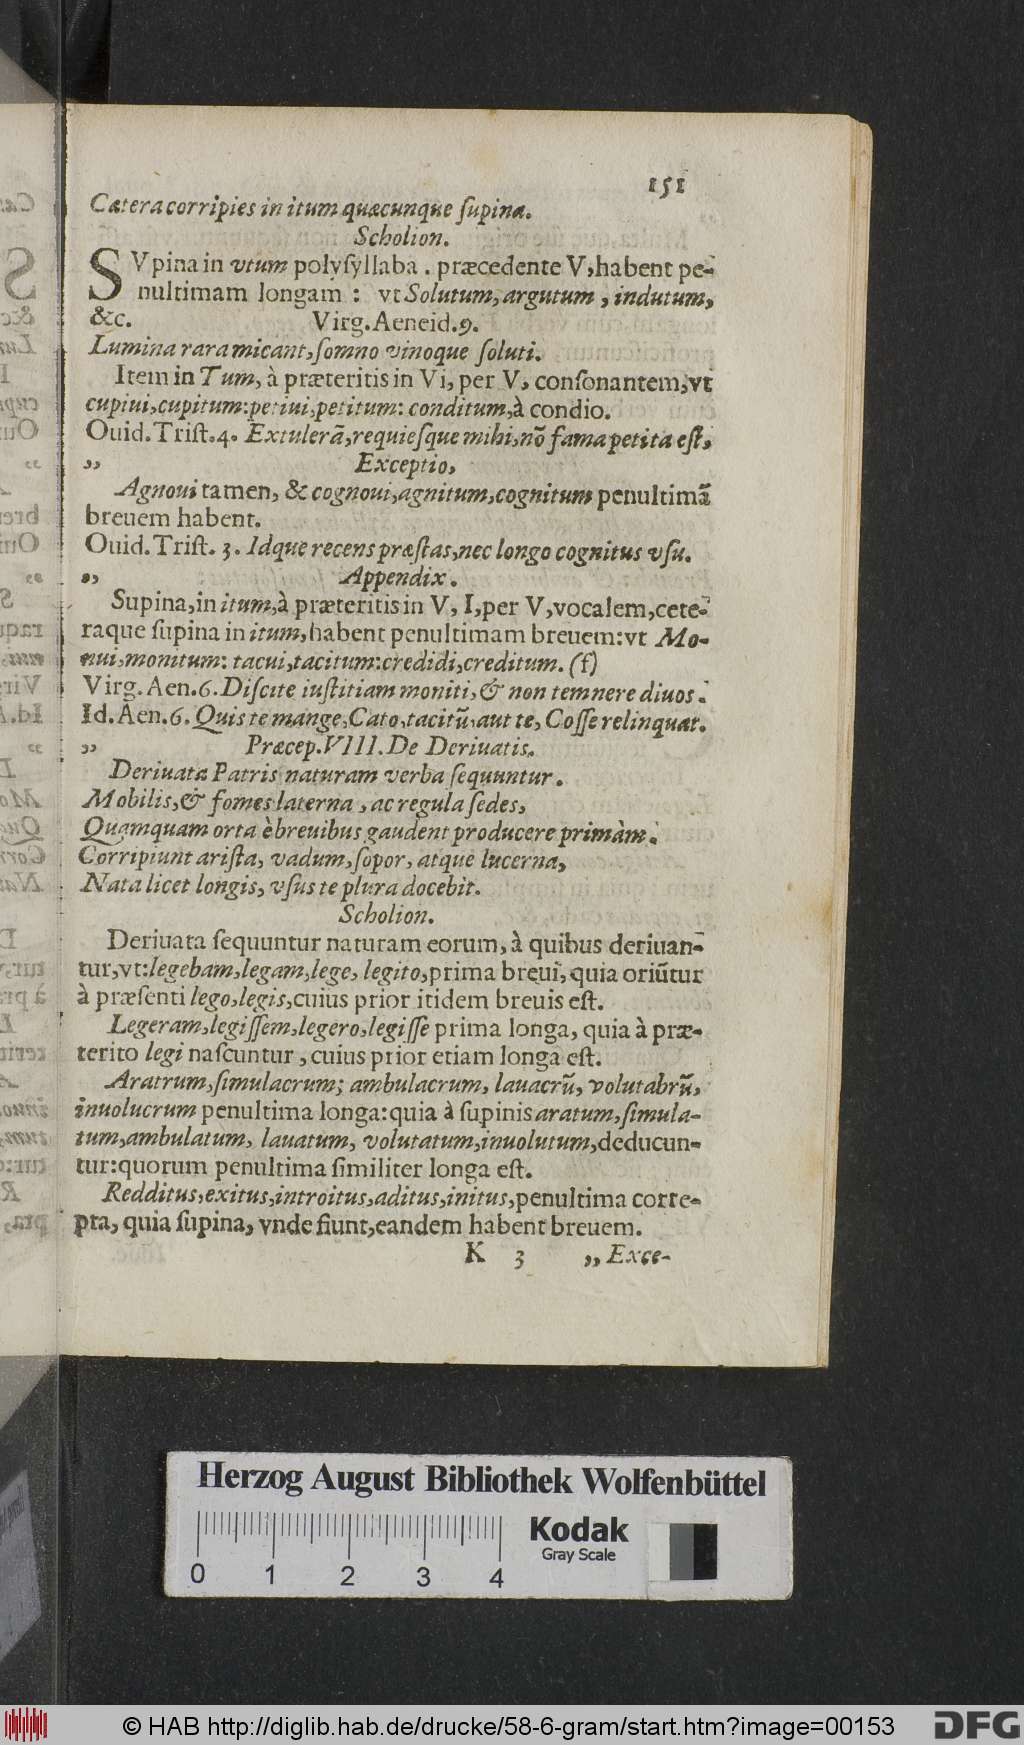 151
Cætera corripies in itum quæcunque ſupina.
Scholion.
SVpina in vtum polyſyllaba . præcedente V, habent pe-
nultimam longam : vt Solutum, argutum , indutum,
&c. Virg. Aeneid. 9.
Lumina rara micant, ſomno vinoque ſoluti.
Item in Tum, à præteritis in Vi, per V, conſonantem, vt
cupiui, cupitum: petiui, petitum: conditum, à condio.
Ouid. Triſt. 4. Extulerã, requieſque mihi, nõ fama petita eſt,
,, Exceptio,
Agnoui tamen, & cognoui, agnitum, cognitum penultimã
breuem habent.
Ouid. Triſt. 3. Idque recens præſtas, nec longo cognitus vſu.
,, Appendix.
Supina, in itum, à præteritis in V, I, per V, vocalem, cete-
raque ſupina in itum, habent penultimam breuem: vt Mo-
nui, monitum: tacui, tacitum: credidi, creditum. (f)
Virg. Aen. 6. Diſcite iuſtitiam moniti, & non temnere diuos.
Id. Aen. 6. Quis te mange, Cato, tacitũ, aut te, Coſſe relinquat.
,, Præcep. VIII. De Deriuatis.
Deriuata Patris naturam verba ſequuntur.
Mobilis, & fomes laterna , ac regula ſedes,
Quamquam orta è breuibus gaudent producere primàm.
Corripiunt ariſta, vadum, ſopor, atque lucerna,
Nata licet longis, vſus te plura docebit.
Scholion.
Deriuata ſequuntur naturam eorum, à quibus deriuan-
tur, vt: legebam, legam, lege, legito, prima breui, quia oriũtur
à præſenti lego, legis, cuius prior itidem breuis eſt.
Legeram, legiſſem, legero, legiſſe prima longa, quia à præ-
terito legi naſcuntur , cuius prior etiam longa eſt.
Aratrum, ſimulacrum; ambulacrum, lauacrũ, volutabrũ,
inuolucrum penultima longa: quia à ſupinis aratum, ſimula-
tum, ambulatum, lauatum, volutatum, inuolutum, deducun-
tur: quorum penultima ſimiliter longa eſt.
Redditus, exitus, introitus, aditus, initus, penultima corre-
pta, quia ſupina, vnde fiunt, eandem habent breuem.
K 3 ,, Exce-
Herzog August Bibliothek Wolfenbüttel
Kodak
Gray Scale
0 1 2 3 4
© HAB http://diglib.hab.de/drucke/58-6-gram/start.htm?image=00153
DFG